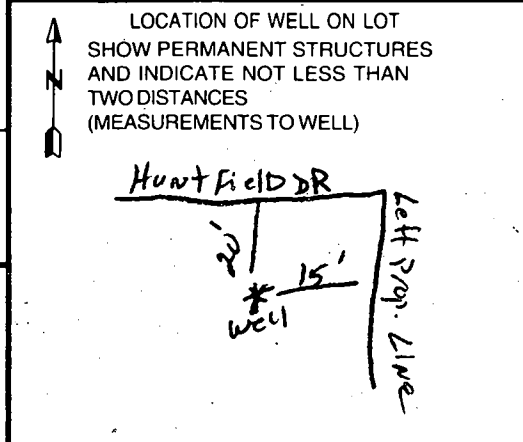 LOCATION OF WELL ON LOT
SHOW PERMANENT STRUCTURES
AND INDICATE NOT LESS THAN
TWO DISTANCES
(MEASUREMENTS TO WELL)
N
HuntField DR
20'
15'
Well
Left Prop. Line